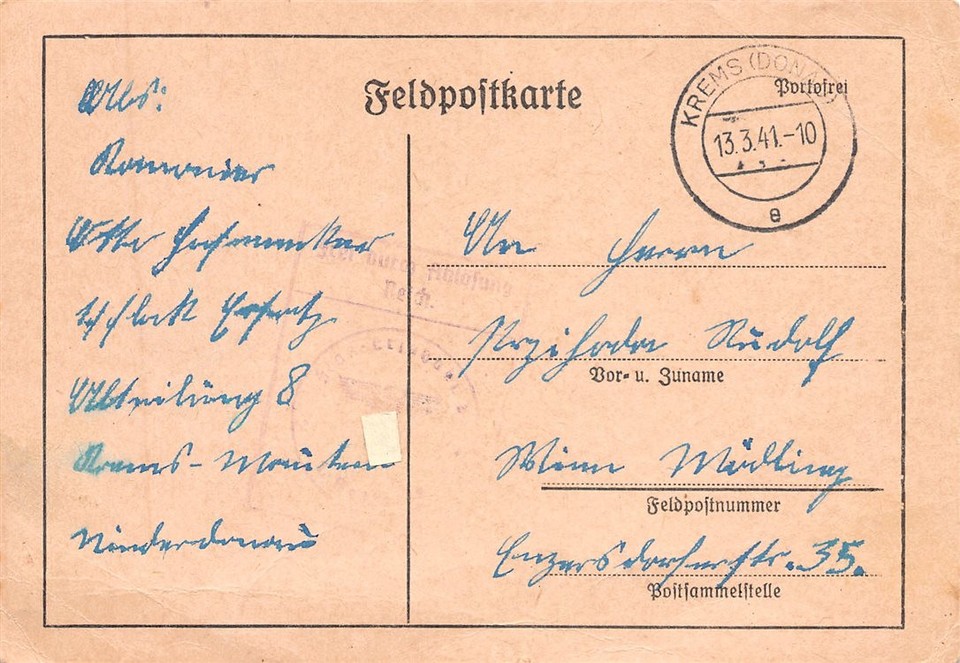 Abs:
Kanonier
Otto
Ersatz
Abteilung 8
Krems-Mautern
Niederdonau
Feldpostkarte
Portofrei
KREMS (DONAU)
13.3.41.-10
e
Frei durch Ablösung
Reich.
An Herrn
Przihoda Rudolf
Vor- u. Zuname
Wien Mödling
Feldpostnummer
Enzersdorferstr. 35.
Postsammelstelle